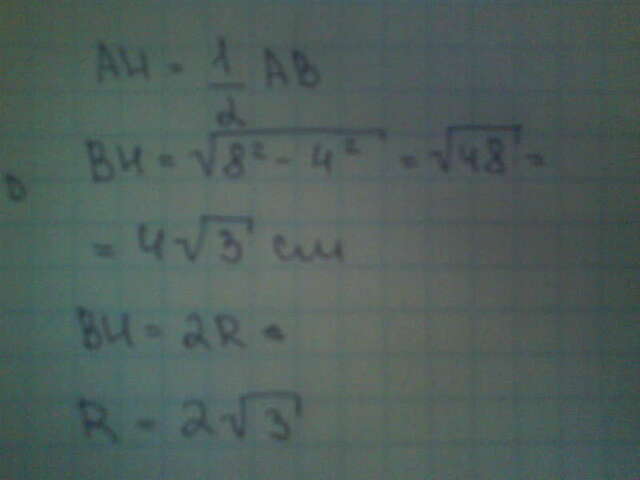 AH = 1/2 AB
BH = √8² - 4² = √48 =
= 4√3 см
BH = 2R =
R = 2√3